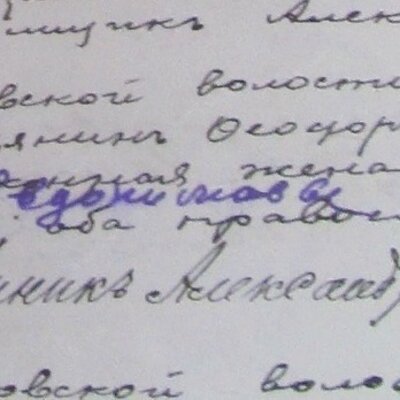 мщикъ Алек
вской волости
янинъ Ѳеодор
онная жена
оба правос
нникъ Александ
овской волос